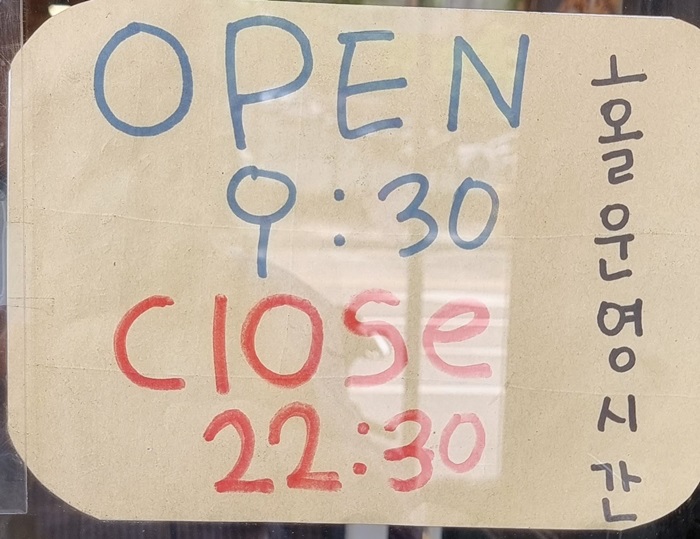 OPEN
9:30
Close
22:30
운영시간